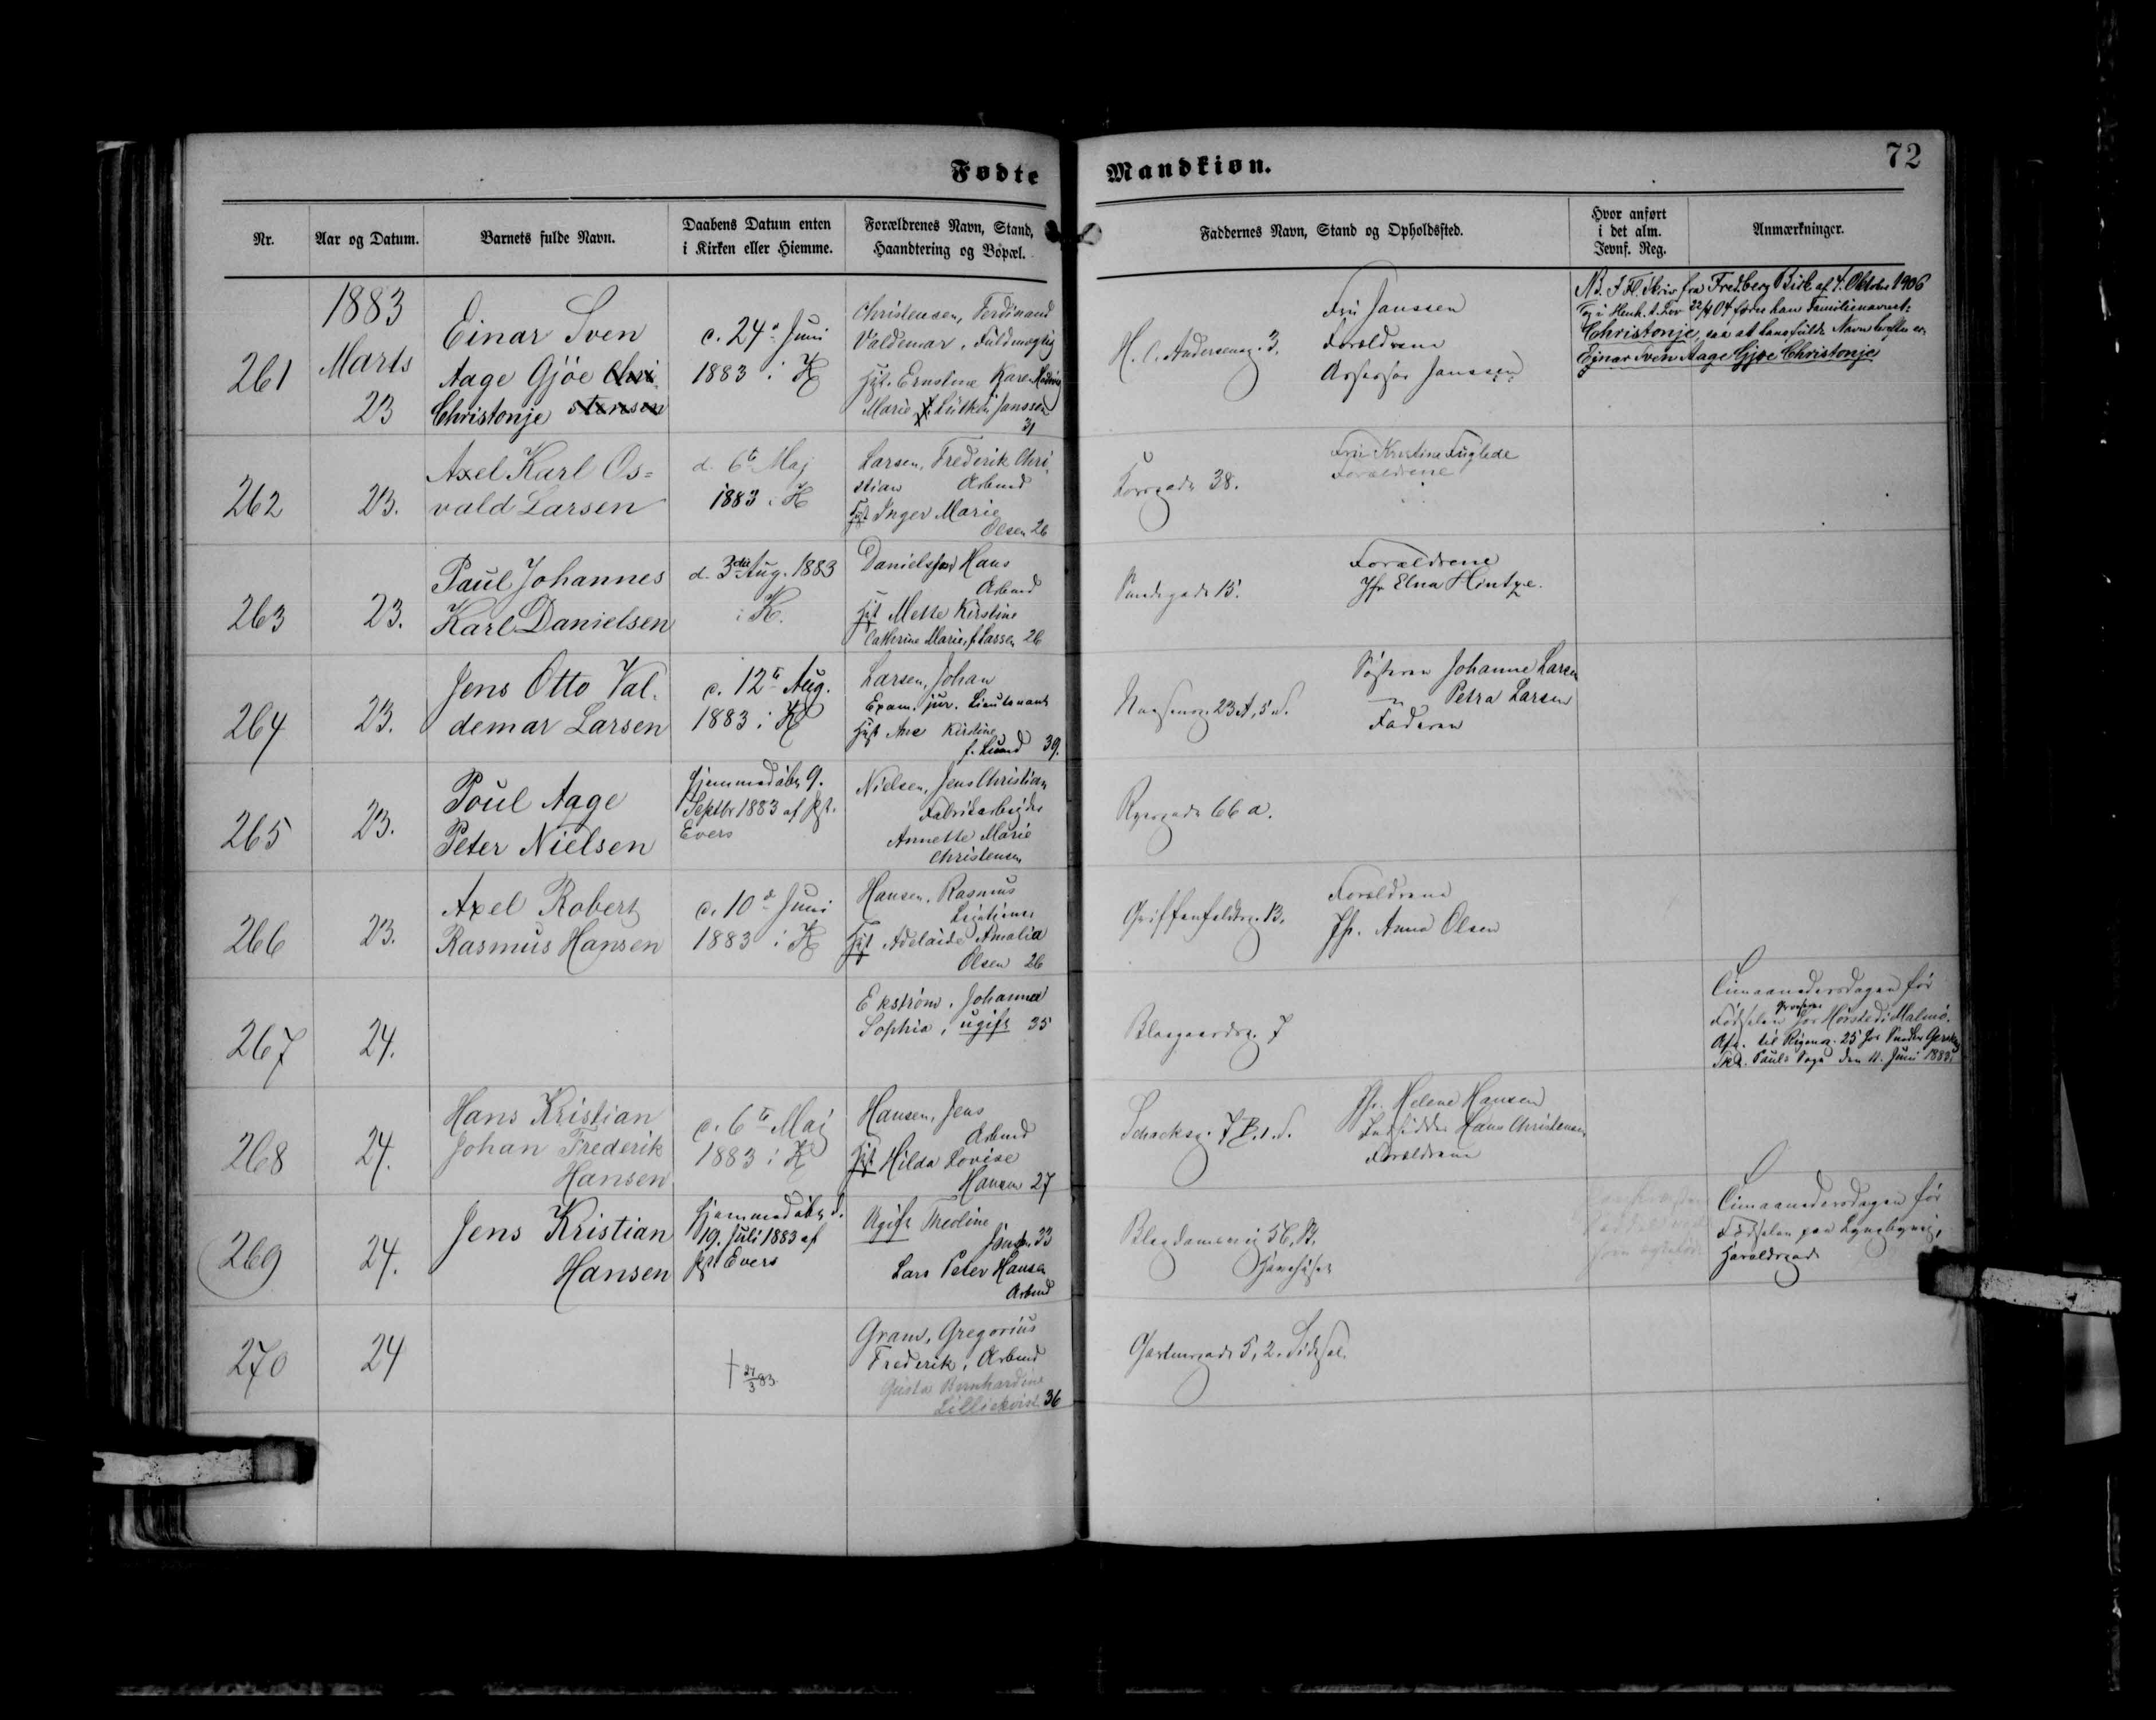 Fødte
Mandkiøn.
72
Nr.
Aar og Datum.
Barnets fulde Navn.
Daabens Datum enten
i Kirken eller Hiemme.
Forældrenes Navn, Stand,
Haandtering og Bopæl.
Faddernes Navn, Stand og Opholdssted.
Hvor anført
i det alm.
Jevnf. Reg.
Anmærkninger.
1883
261
Marts
23
Einar Sven
Aage Gjöe Chri
Christonje stensen
d. 24d Juni
1883 i K
Christensen, Ferdinand
Valdemar, Fuldmægtig
Hst. Ernstine Karen
Marie Lütken Janssen
31
H. C. Andersensg. 3.
Fru Janssen
Forældrene
Assessor Janssen
Fredberg Birk af 4. Oktober 1906
22/4 04 fører han Familienavnet:
Christonje, saa at hans fulde Navn herefter er
Ejnar Sven Aage Gjøe Christonje
262
23.
Axel Karl Os-
vald Larsen
d. 6t Maj
1883 i K
Larsen, Frederik Chri-
stian Arbmd
Hst Inger Marie
Olsen 26
Korsgade 38.
Fru Kristine Fuglede
Forældrene
263
23.
Paul Johannes
Karl Danielsen
d. 3die Aug. 1883
i K.
Danielsen Hans
Arbmd
Hst Mette Kirstine
Cathrine Marie, f. Larsen 26
15.
Forældrene
Jfr Elna Hintze.
264
23.
Jens Otto Val-
demar Larsen
d. 12t Aug.
1883 i K
Larsen, Johan
Exam. jur. Lieutenant
Hst Ane Kirstine
f. Lund 39.
23A, 5 S.
Søsteren Johanne Larsen
Petra Larsen
Faderen
265
23.
Poul Aage
Peter Nielsen
Hjemmedøbt 9.
Septbr 1883 af pst.
Evers
Nielsen, Jens Christian
Fabrikarbejder
Annette Marie
Christensen
Ryesgade 66 a.
266
23.
Axel Robert
Rasmus Hansen
d. 10d Juni
1883 i K
Hansen, Rasmus
Hst Adelaide Amalia
Olsen 26
Griffenfeldtsg. 13.
Forældrene
Jfr. Anna Olsen
267
24.
Ekström, Johanna
Sophia, ugift 35
Blaagaardsg. 7
Timaanedersdagen før
Fødselen hos Hørsted i Malmö.
Afg. til Rigensg. 25 hos
Skt. Pauls Sogn den 11. Juni 1883.
268
24.
Hans Kristian
Johan Frederik
Hansen
d. 6t Maj
1883 i K
Hansen, Jens
Arbmd
Hst Hilda Lovise
Hansen 27
Schacksg. 7 B. 1. S.
Jfr. Helene Hansen
Hans Christensen
Forældrene
269
24.
Jens Kristian
Hansen
Hjemmedøbt d.
19. Juli 1883 af
pst Evers
Ugift Theoline
Jensen 33
Lars Peter Hansen
Arbmd
Blegdamsvej 56, B.
Timaanedersdagen før
Fødselen paa Lyngbyvej,
Haraldsgade
270
24
† 27/3 83.
Gram, Gregorius
Frederik, Arbmd
Gusta Bernhardine
Lilliekvist 36
Gartnergade 5, 2. Sidesal.